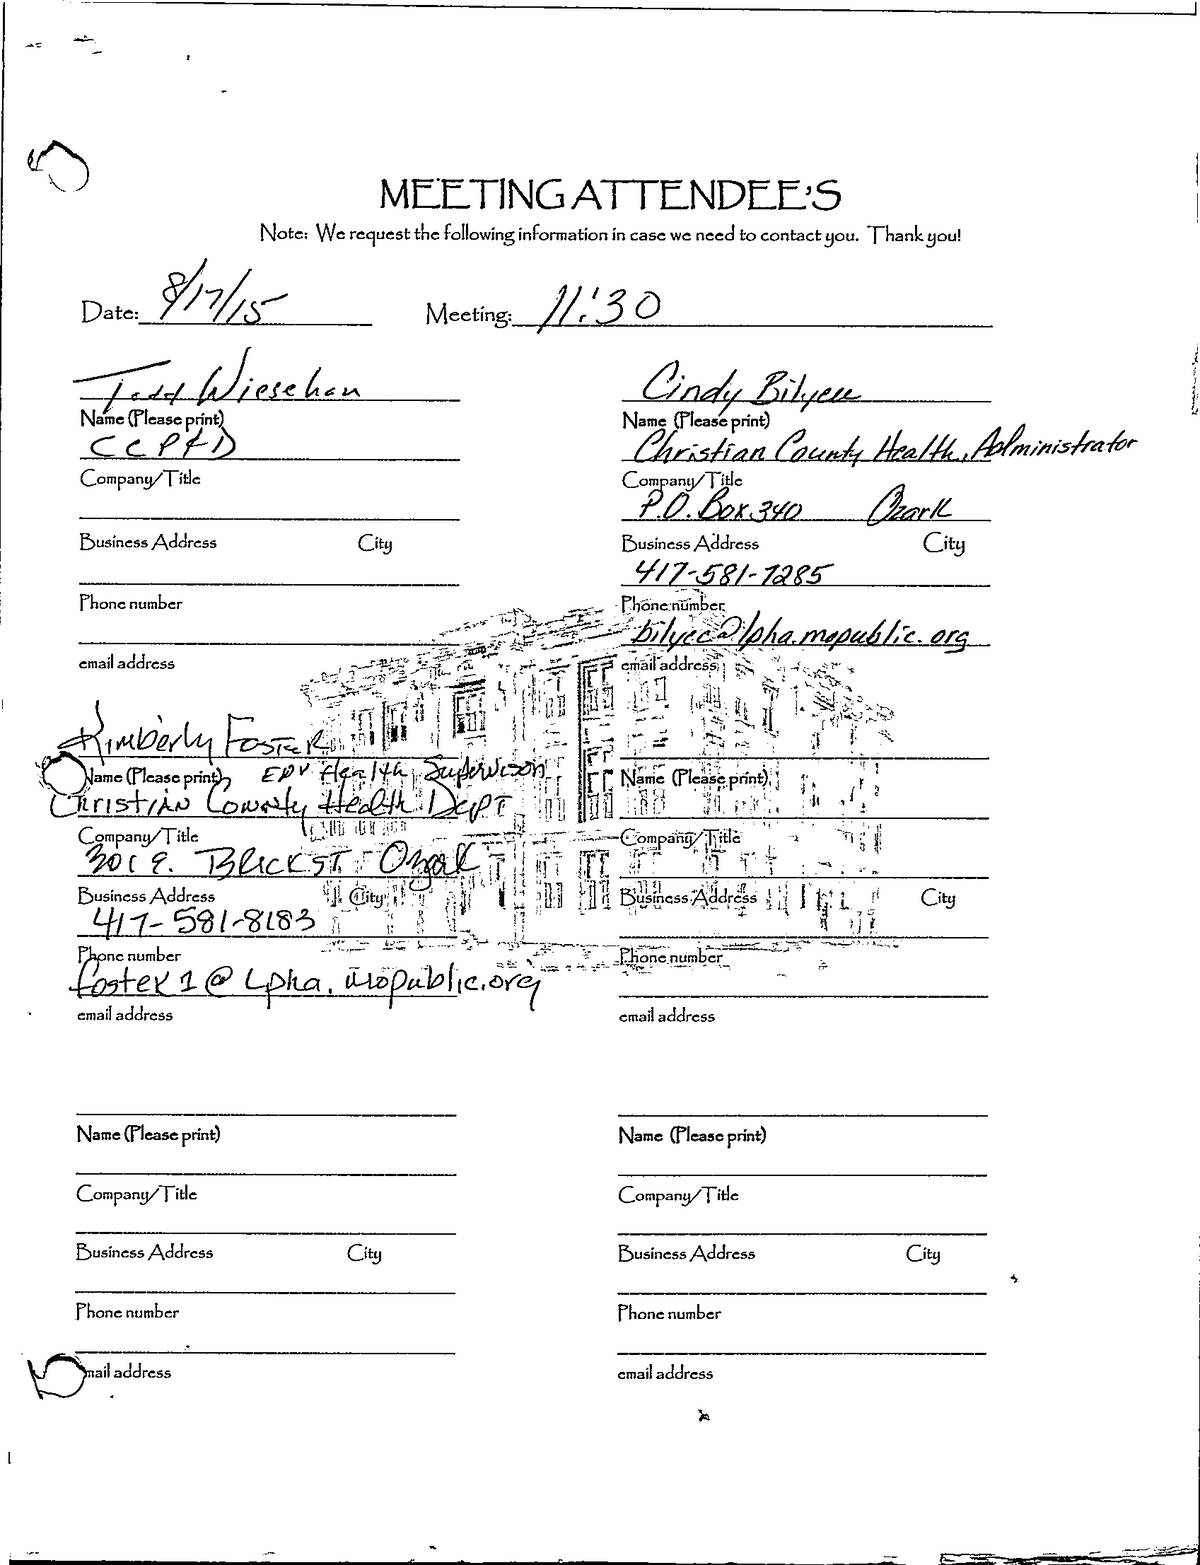 MEETING ATTENDEE'S
Note: We request the following information in case we need to contact you. Thank you!
Date: 8/17/15 Meeting: 11:30
Todd Wiesehan
Name (Please print)
CCP&D
Company/Title
Business Address City
Phone number
email address
Cindy Bilyeu
Name (Please print)
Christian County Health, Administrator
Company/Title
P.O. Box 340 Ozark
Business Address City
417-581-7285
Phone number
bilyec@lpha.mopublic.org
email address
Kimberly Foster
Name (Please print) Env Health Supervisor
Christian County Health Dept
Company/Title
301 E. Brick St Ozark
Business Address City
417-581-8183
Phone number
foster1@lpha.mopublic.org
email address
Name (Please print)
Company/Title
Business Address City
Phone number
email address
Name (Please print)
Company/Title
Business Address City
Phone number
mail address
Name (Please print)
Company/Title
Business Address City
Phone number
email address